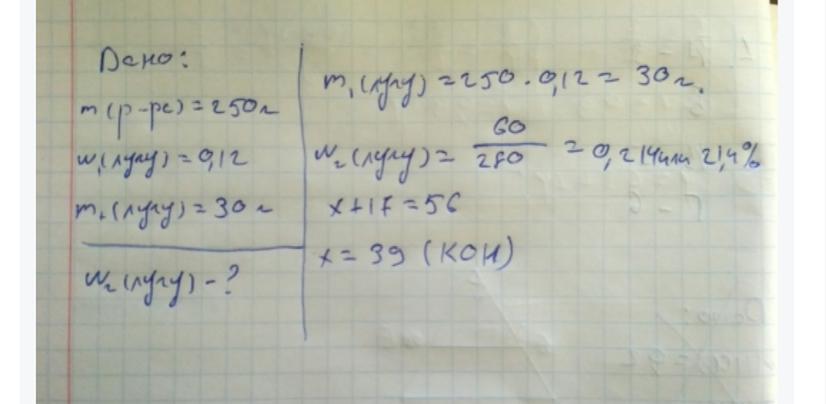 Дано:
m(р-ра) = 250 г
w₁(лугу) = 0,12
m₁(лугу) = 30 г
w₂(лугу) - ?
m₁(лугу) = 250 · 0,12 = 30 г.
w₂(лугу) = 60/280 = 0,214 или 21,4%
x + 17 = 56
x = 39 (KOH)